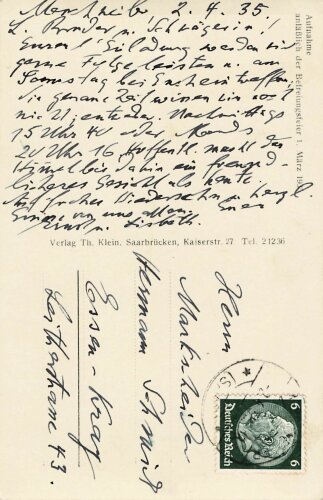 2. 4. 35
L. Bruder u. Schwägerin!
Eurer Einladung werden wir
gerne Folge leisten u. am
Samstag bei Euch eintreffen.
die genaue Zeit wissen wir noch
nicht, entweder Nachmittags
15 Uhr 40 oder Abends
20 Uhr 16, hoffentl. macht der
Himmel bis dahin ein freund-
licheres Gesicht als heute.
Auf frohes Wiedersehn u. herzl.
Grüsse von uns allen. Euer
u. Lisbeth.
Aufnahme
anläßlich der Befreiungsfeier 1. März 19
Verlag Th. Klein, Saarbrücken, Kaiserstr. 27 Tel. 21236
Herrn
Markscheider
Hermann Schmidt
Essen-Kray
43.
6 6
Deutsches Reich